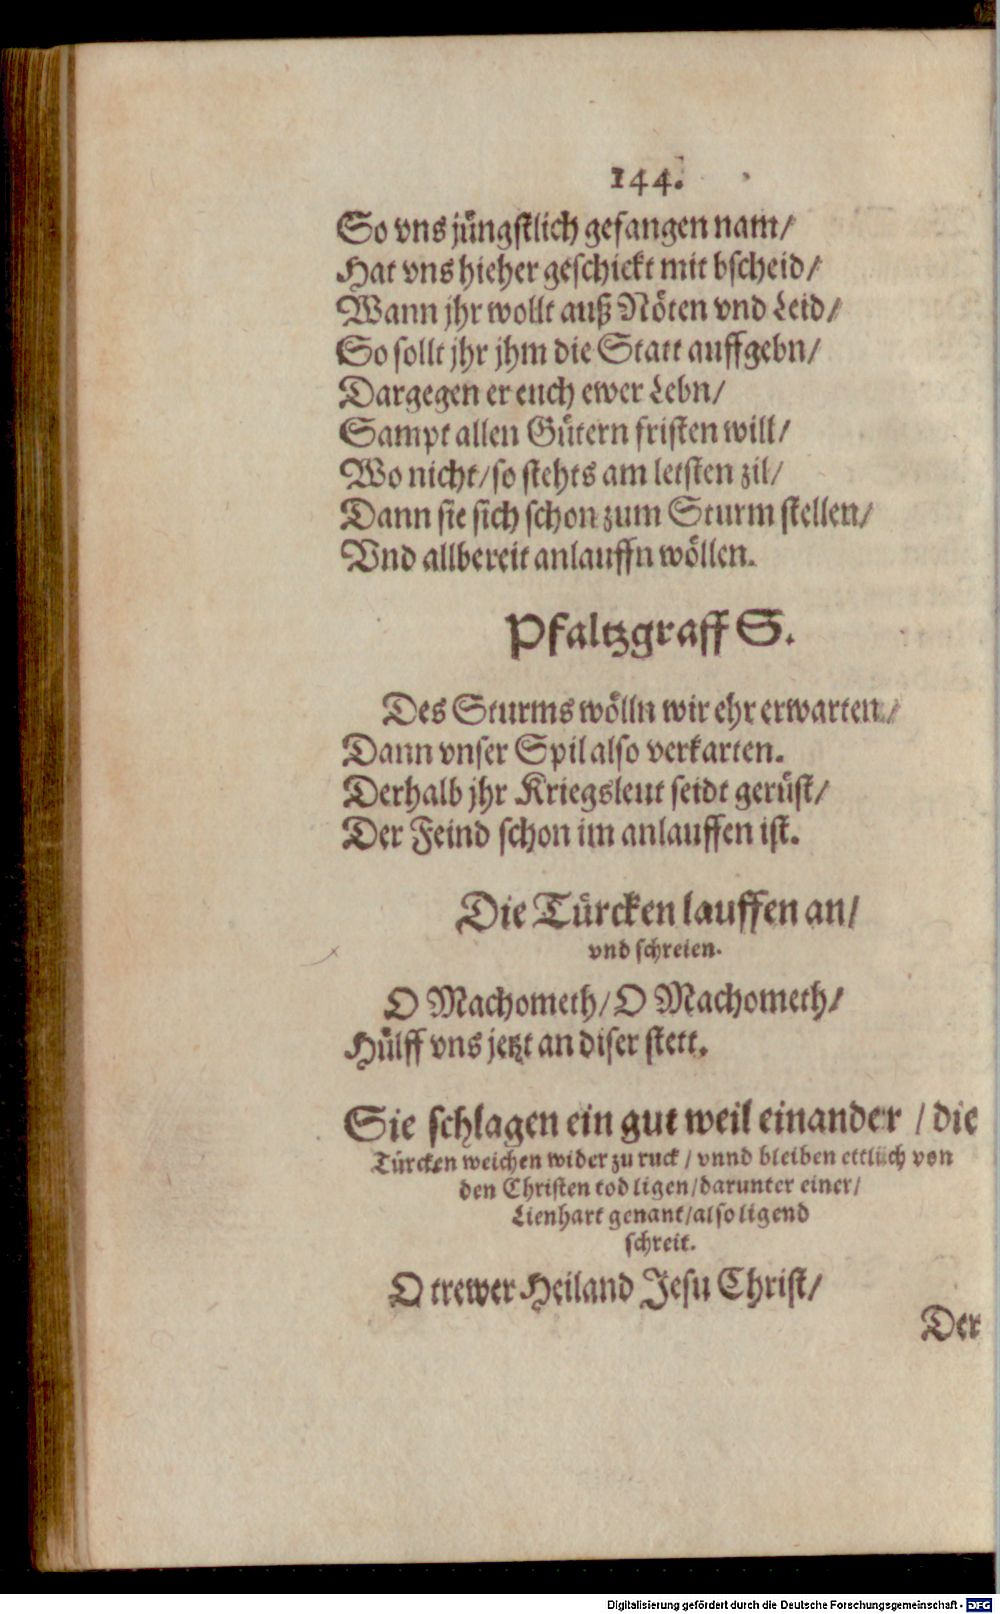 144.
So vns jüngstlich gefangen nam/
Hat vns hieher geschickt mit bscheid/
Wann jhr wollt auß Nöten vnd Leid/
So sollt jhr jhm die Statt auffgebn/
Dargegen er euch ewer Lebn/
Sampt allen Gütern fristen will/
Wo nicht/so stehts am letsten zil/
Dann sie sich schon zum Sturm stellen/
Vnd allbereit anlauffn wöllen.
Pfaltzgraff S.
Des Sturms wölln wir ehr erwarten/
Dann vnser Spil also verkarten.
Derhalb jhr Kriegsleut seidt gerüst/
Der Feind schon im anlauffen ist.
Die Türcken lauffen an/
vnd schreien.
O Machometh/O Machometh/
Hülff vns jetzt an diser stett.
Sie schlagen ein gut weil einander /die
Türcken weichen wider zu ruck/vnnd bleiben ettlich von
den Christen tod ligen/darunter einer/
Lienhart genant/also ligend
schreit.
O trewer Heiland Jesu Christ/
Der
Digitalisierung gefördert durch die Deutsche Forschungsgemeinschaft - DFG